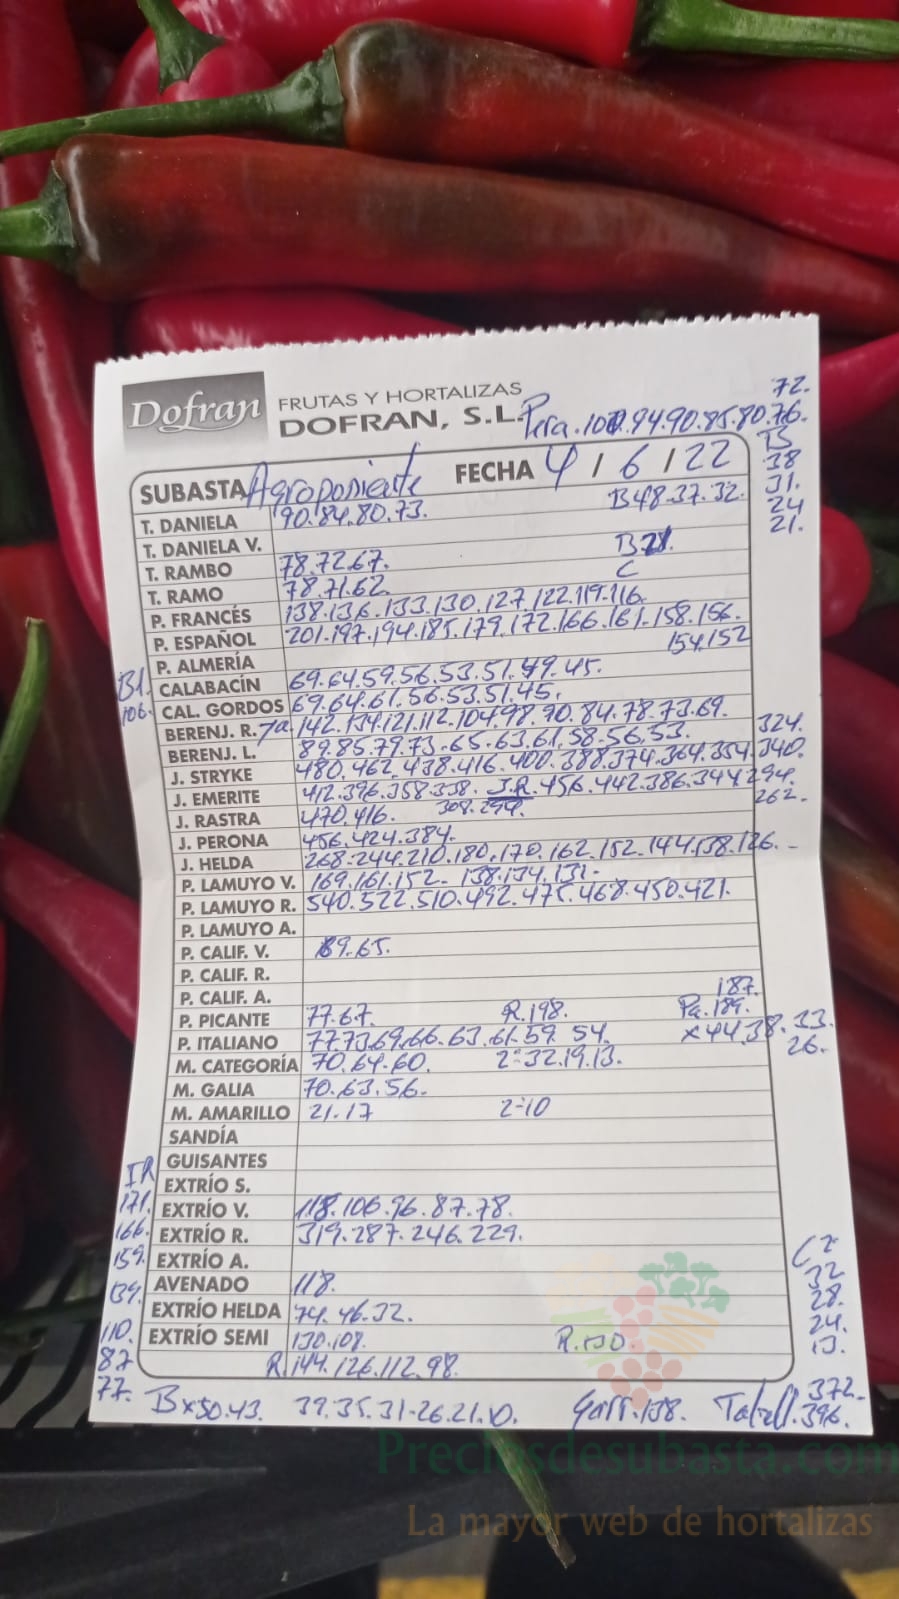 72.
Dofran FRUTAS Y HORTALIZAS
DOFRAN, S.L. Pera.102.94.90.85.80.76.
B
38
31.
24
21.
SUBASTA Agroponiente FECHA 4 / 6 / 22
T. DANIELA 90.84.80.73. B48.37.32.
T. DANIELA V.
T. RAMBO 78.72.67. B28.
T. RAMO 78.71.62. C
P. FRANCÉS 138.136.133.130.127.122.119.116.
P. ESPAÑOL 201.197.194.185.179.172.166.161.158.156.
154.152
P. ALMERÍA
B1. CALABACÍN 69.64.59.56.53.51.49.45.
106. CAL. GORDOS 69.64.61.56.53.51.45.
BERENJ. R. 7a.142.134.121.112.104.98.90.84.78.73.69.
BERENJ. L. 89.85.79.73.65.63.61.58.56.53. 324.
J. STRYKE 480.462.438.416.400.388.374.364.354.340.
J. EMERITE 412.396.358.338. J.R.456.442.386.344.294.
J. RASTRA 470.416. 308.294. 262.
J. PERONA 456.424.384.
J. HELDA 268.244.210.180.170.162.152.144.138.126.
P. LAMUYO V. 169.161.152. 138.134.131.
P. LAMUYO R. 540.522.510.492.475.468.450.421.
P. LAMUYO A.
P. CALIF. V. 69.65.
P. CALIF. R.
P. CALIF. A. 187.
P. PICANTE 77.67. R.198. Pa.189.
P. ITALIANO 77.73.69.66.63.61.59.54. x44.38.33.
26.
M. CATEGORÍA 70.64.60. 2=32.19.13.
M. GALIA 70.63.56.
M. AMARILLO 21.17 2=10
SANDÍA
GUISANTES
IR EXTRÍO S.
171. EXTRÍO V. 118.106.96.87.78.
166. EXTRÍO R. 319.287.246.229.
159. EXTRÍO A.
139. AVENADO 118.
EXTRÍO HELDA 74.46.32.
110. EXTRÍO SEMI 130.108. R.130
87 R.144.126.112.98.
77.
C2
32
28.
24.
13.
Bx50.43. 39.35.31-26.21.10. Garr.138. Tabell.
372.
396.
Preciosdesubasta.com
La mayor web de hortalizas